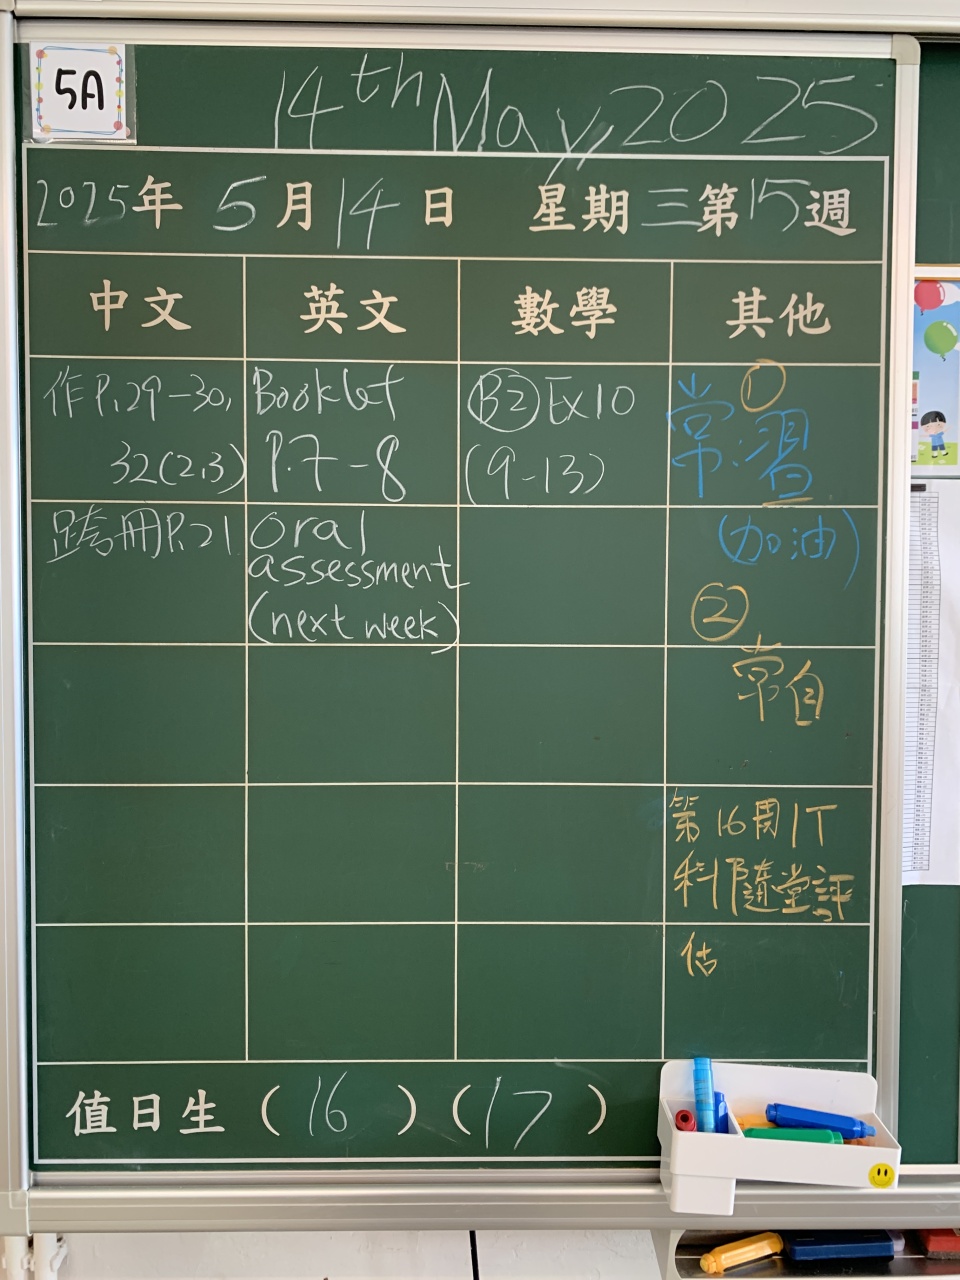 5A
14th May, 2025
2025年 5月14日 星期三第15週
中文 英文 數學 其他
作P.29-30,
32(2,3)
Booklet
P.7-8
B2 Ex10
(9-13)
①
常.習
(加油)
跨冊P.21
Oral
assessment
(next week)
②
常自
第16周IT
科隨堂評
估
值日生 (16) (17)